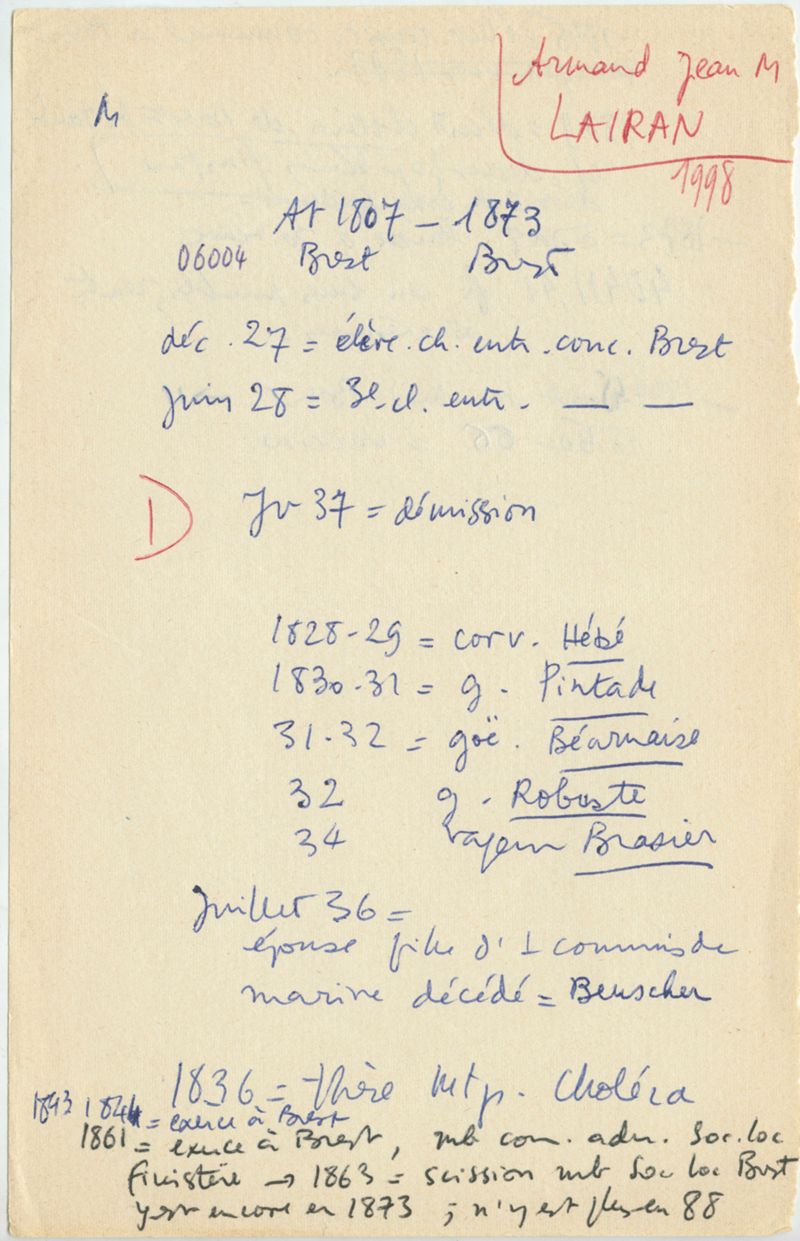 Armand Jean M
LAIRAN
1998
M
At 1807 - 1873
06004 Brest Brest
déc. 27 = élève. ch. entr. conc. Brest
Juin 28 = 3e. cl. entr. — —
D
Jv 37 = démission
1828-29 = corv. Hébé
1830-31 = g. Pintade
31-32 = goë. Béarnaise
32 g. Robuste
34 vapeur Brasier
Juillet 36 =
épouse fille d'1 commis de
marine décédé = Beuscher
1836 = thèse Mtp. Choléra
1843 1844 = exerce à Brest
1861 = exerce à Brest, mb com. adm. Soc. loc
Finistère → 1863 = scission mb Soc loc Brest
y est encore en 1873 ; n'y est plus en 88